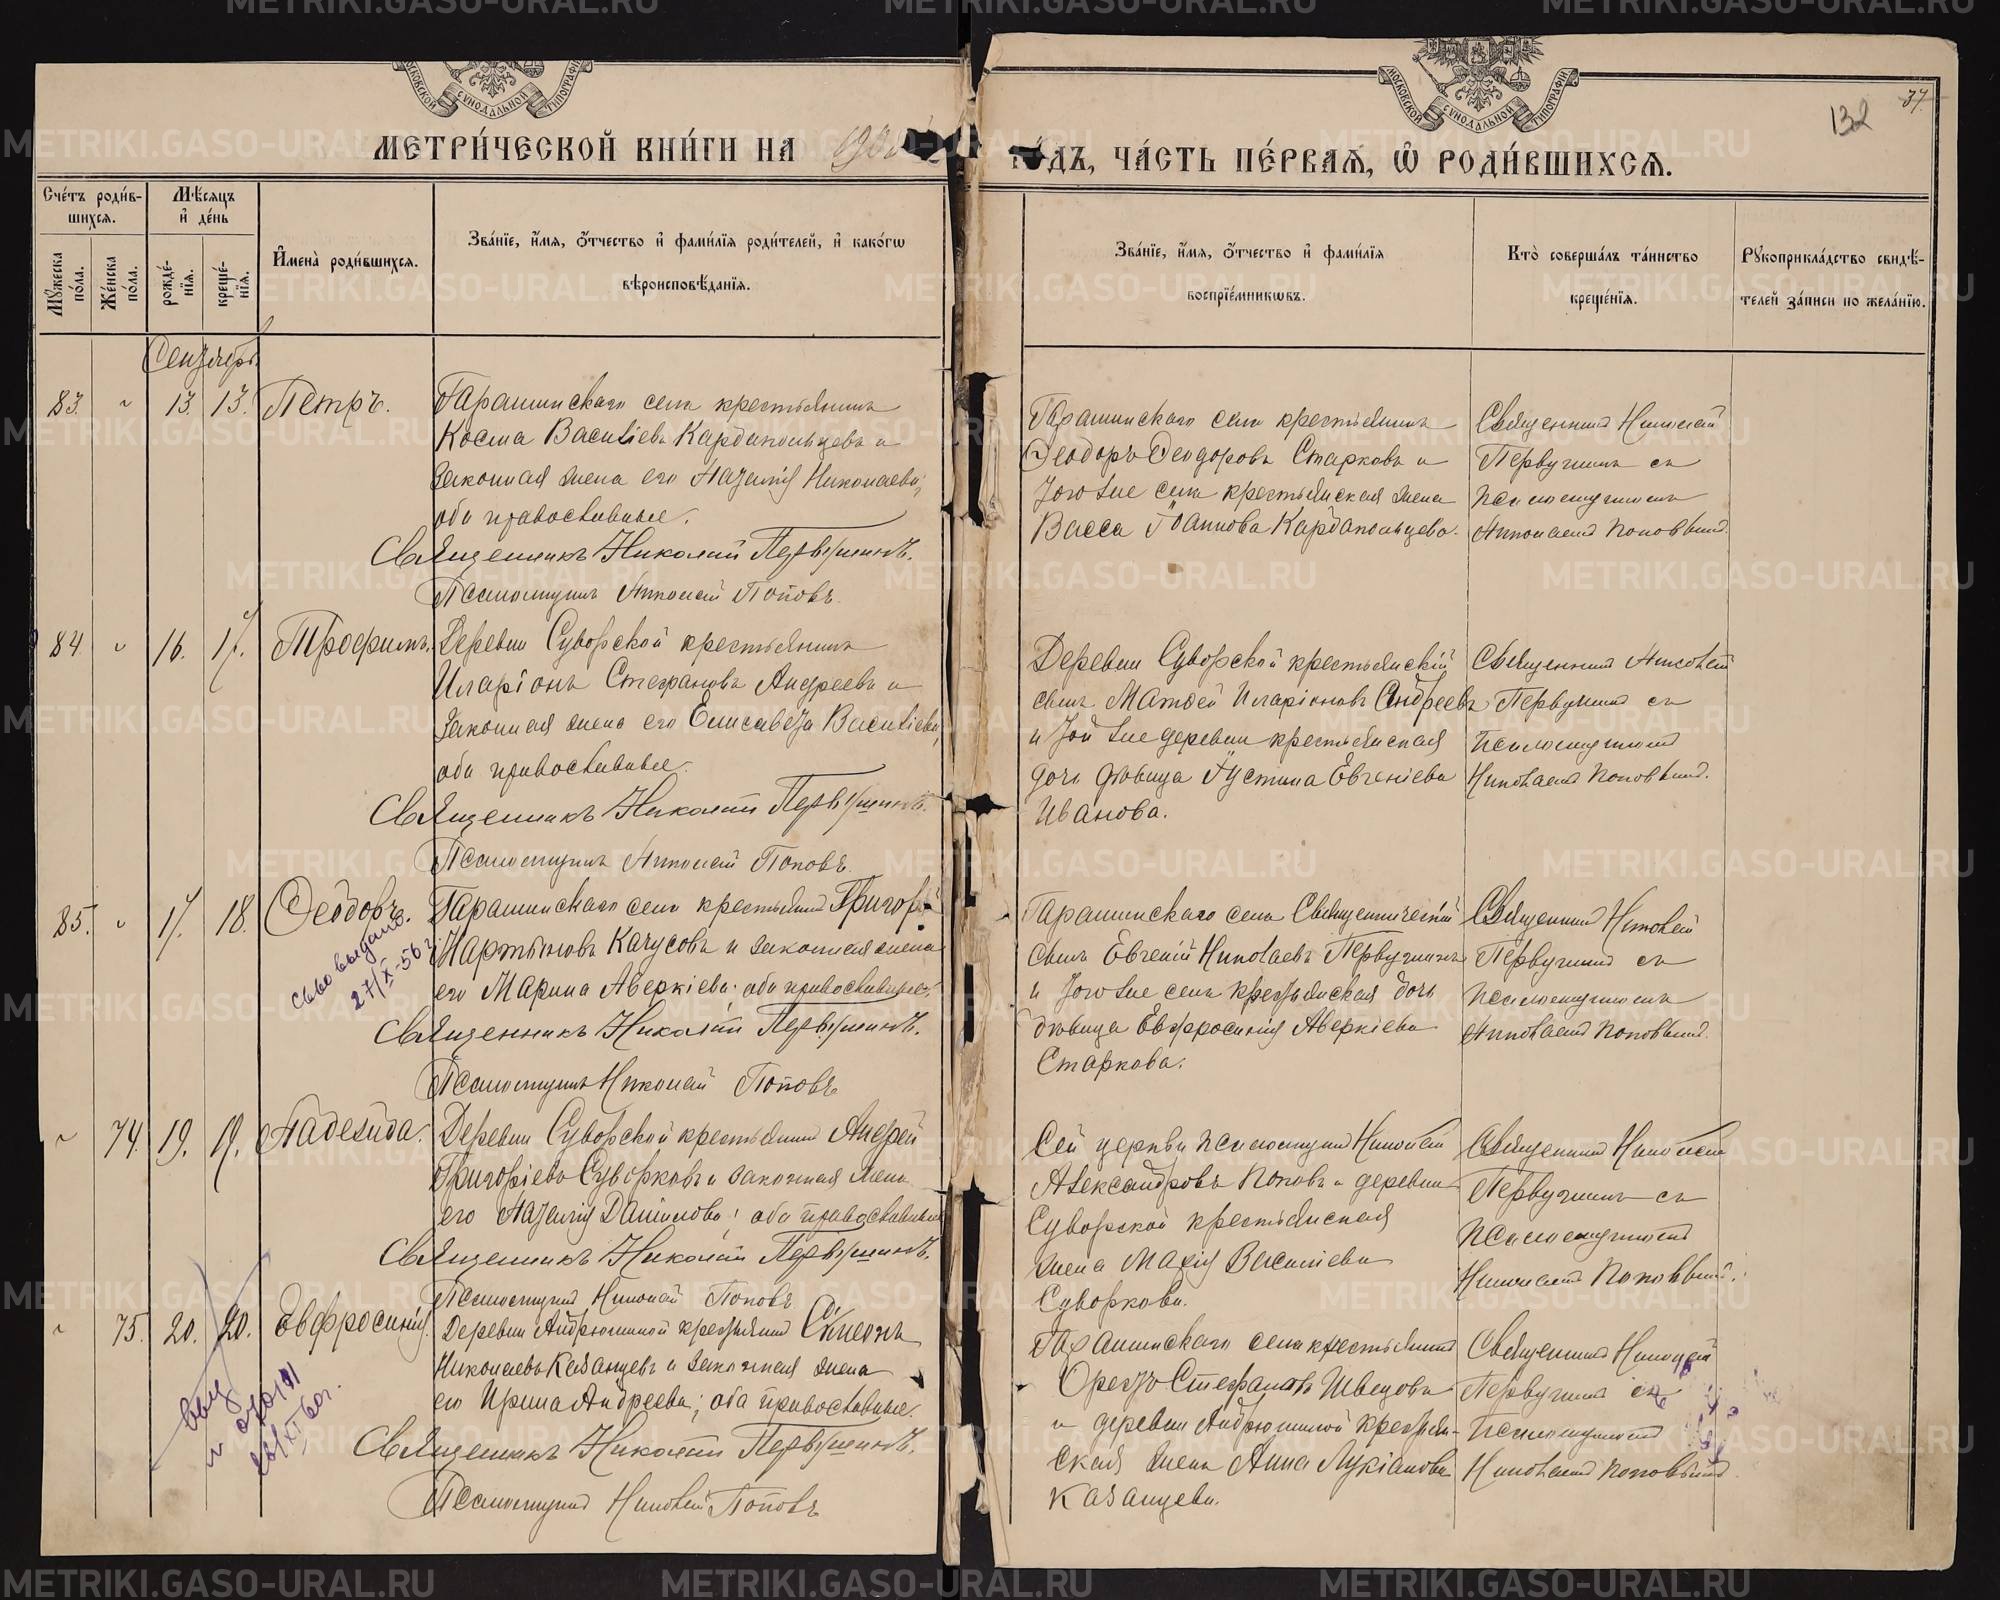 МОСКОВСКОЙ СУНОДАЛЬНОЙ ТИПОГРАФИИ
МОСКОВСКОЙ СУНОДАЛЬНОЙ ТИПОГРАФИИ
132
37
МЕТРИ́ЧЕСКОЙ КНИ́ГИ НА
ДЪ, ЧА́СТЬ ПЕ́РВАѦ, Ѡ РОДИ́ВШИХСѦ.
Сче́тъ роди́в-
шихсѧ.
Мѣ́сѧцъ
и҆ де́нь
Мꙋ́жеска по́ла.
Же́нска по́ла.
рожде́-нїѧ.
креще́-нїѧ.
И҆мена̀ роди́вшихсѧ.
Зва́нїе, и҆́мѧ, ѻ҆́тчество и҆ фамѝлїѧ роди́телей, и҆ како́гѡ
вѣроисповѣ́данїѧ.
Зва́нїе, и҆́мѧ, ѻ҆́тчество и҆ фами́лїѧ
воспрїе́мникѡвъ.
Кто̀ соверша́лъ та́инство
креще́нїѧ.
Рꙋкоприкла́дство свидѣ́-
телей за́писи по жела́нїю.
Сентябрь.
83. 13. 13. Петръ.
Гарашинскаго села крестьянинъ
Косма Василіевъ Кардапольцевъ и
законная жена его Наталія Николаева;
оба православные.
Священникъ Николай Первушинъ.
Псаломщикъ Николай Поповъ.
Гарашинскаго села крестьянинъ
Ѳеодоръ Ѳеодоровъ Старковъ и
того же села крестьянская жена
Васса Іоаннова Кардапольцева.
Священникъ Николай
Первушинъ съ
псаломщикомъ
Николаемъ Поповымъ.
84 16. 17. Трофимъ.
Деревни Суворской крестьянинъ
Иларіонъ Стефановъ Андреевъ и
законная жена его Елисавета Василіева,
оба православные.
Священникъ Николай Первушинъ.
Псаломщикъ Николай Поповъ.
Деревни Суворской крестьянскій
сынъ Матѳей Иларіоновъ Андреевъ
и той же деревни крестьянская
дочь дѣвица Іустина Евгеніева
Иванова.
Священникъ Николай
Первушинъ съ
псаломщикомъ
Николаемъ Поповымъ.
85. 17. 18. Ѳеодоръ.
св-во выдано
27/IX-56 г.
Гарашинскаго села крестьянинъ Григорій
Мартыновъ Качусовъ и законная жена
его Марина Аверкіева; оба православные.
Священникъ Николай Первушинъ.
Псаломщикъ Николай Поповъ
Гарашинскаго села Священническій
сынъ Евгеній Николаевъ Первушинъ
и того же села крестьянская дочь
дѣвица Евфросинія Аверкіева
Старкова.
Священникъ Николай
Первушинъ съ
псаломщикомъ
Николаемъ Поповымъ.
74. 19. 19. Надежда.
Деревни Суворской крестьянинъ Андрей
Григоріевъ Суворковъ и законная жена
его Наталія Даніилова; оба православные
Священникъ Николай Первушинъ.
Псаломщикъ Николай Поповъ
Сей церкви псаломщикъ Николай
Александровъ Поповъ и деревни
Суворской крестьянская
жена Марія Василіева
Суворкова.
Священникъ Николай
Первушинъ съ
псаломщикомъ
Николаемъ Поповымъ.
75. 20. 20. Евфросинія.
Деревни Андрюшиной крестьянинъ Симеонъ
Николаевъ Казанцевъ и законная жена
его Ирина Андреева; оба православные.
Священникъ Николай Первушинъ.
Псаломщикъ Николай Поповъ
Гарашинскаго села крестьянинъ
Орестъ Стефановъ Швецовъ
и деревни Андрюшиной крестьян-
ская жена Анна Лукіанова
Казанцева.
Священникъ Николай
Первушинъ съ
псаломщикомъ
Николаемъ Поповымъ
METRIKI.GASO-URAL.RU